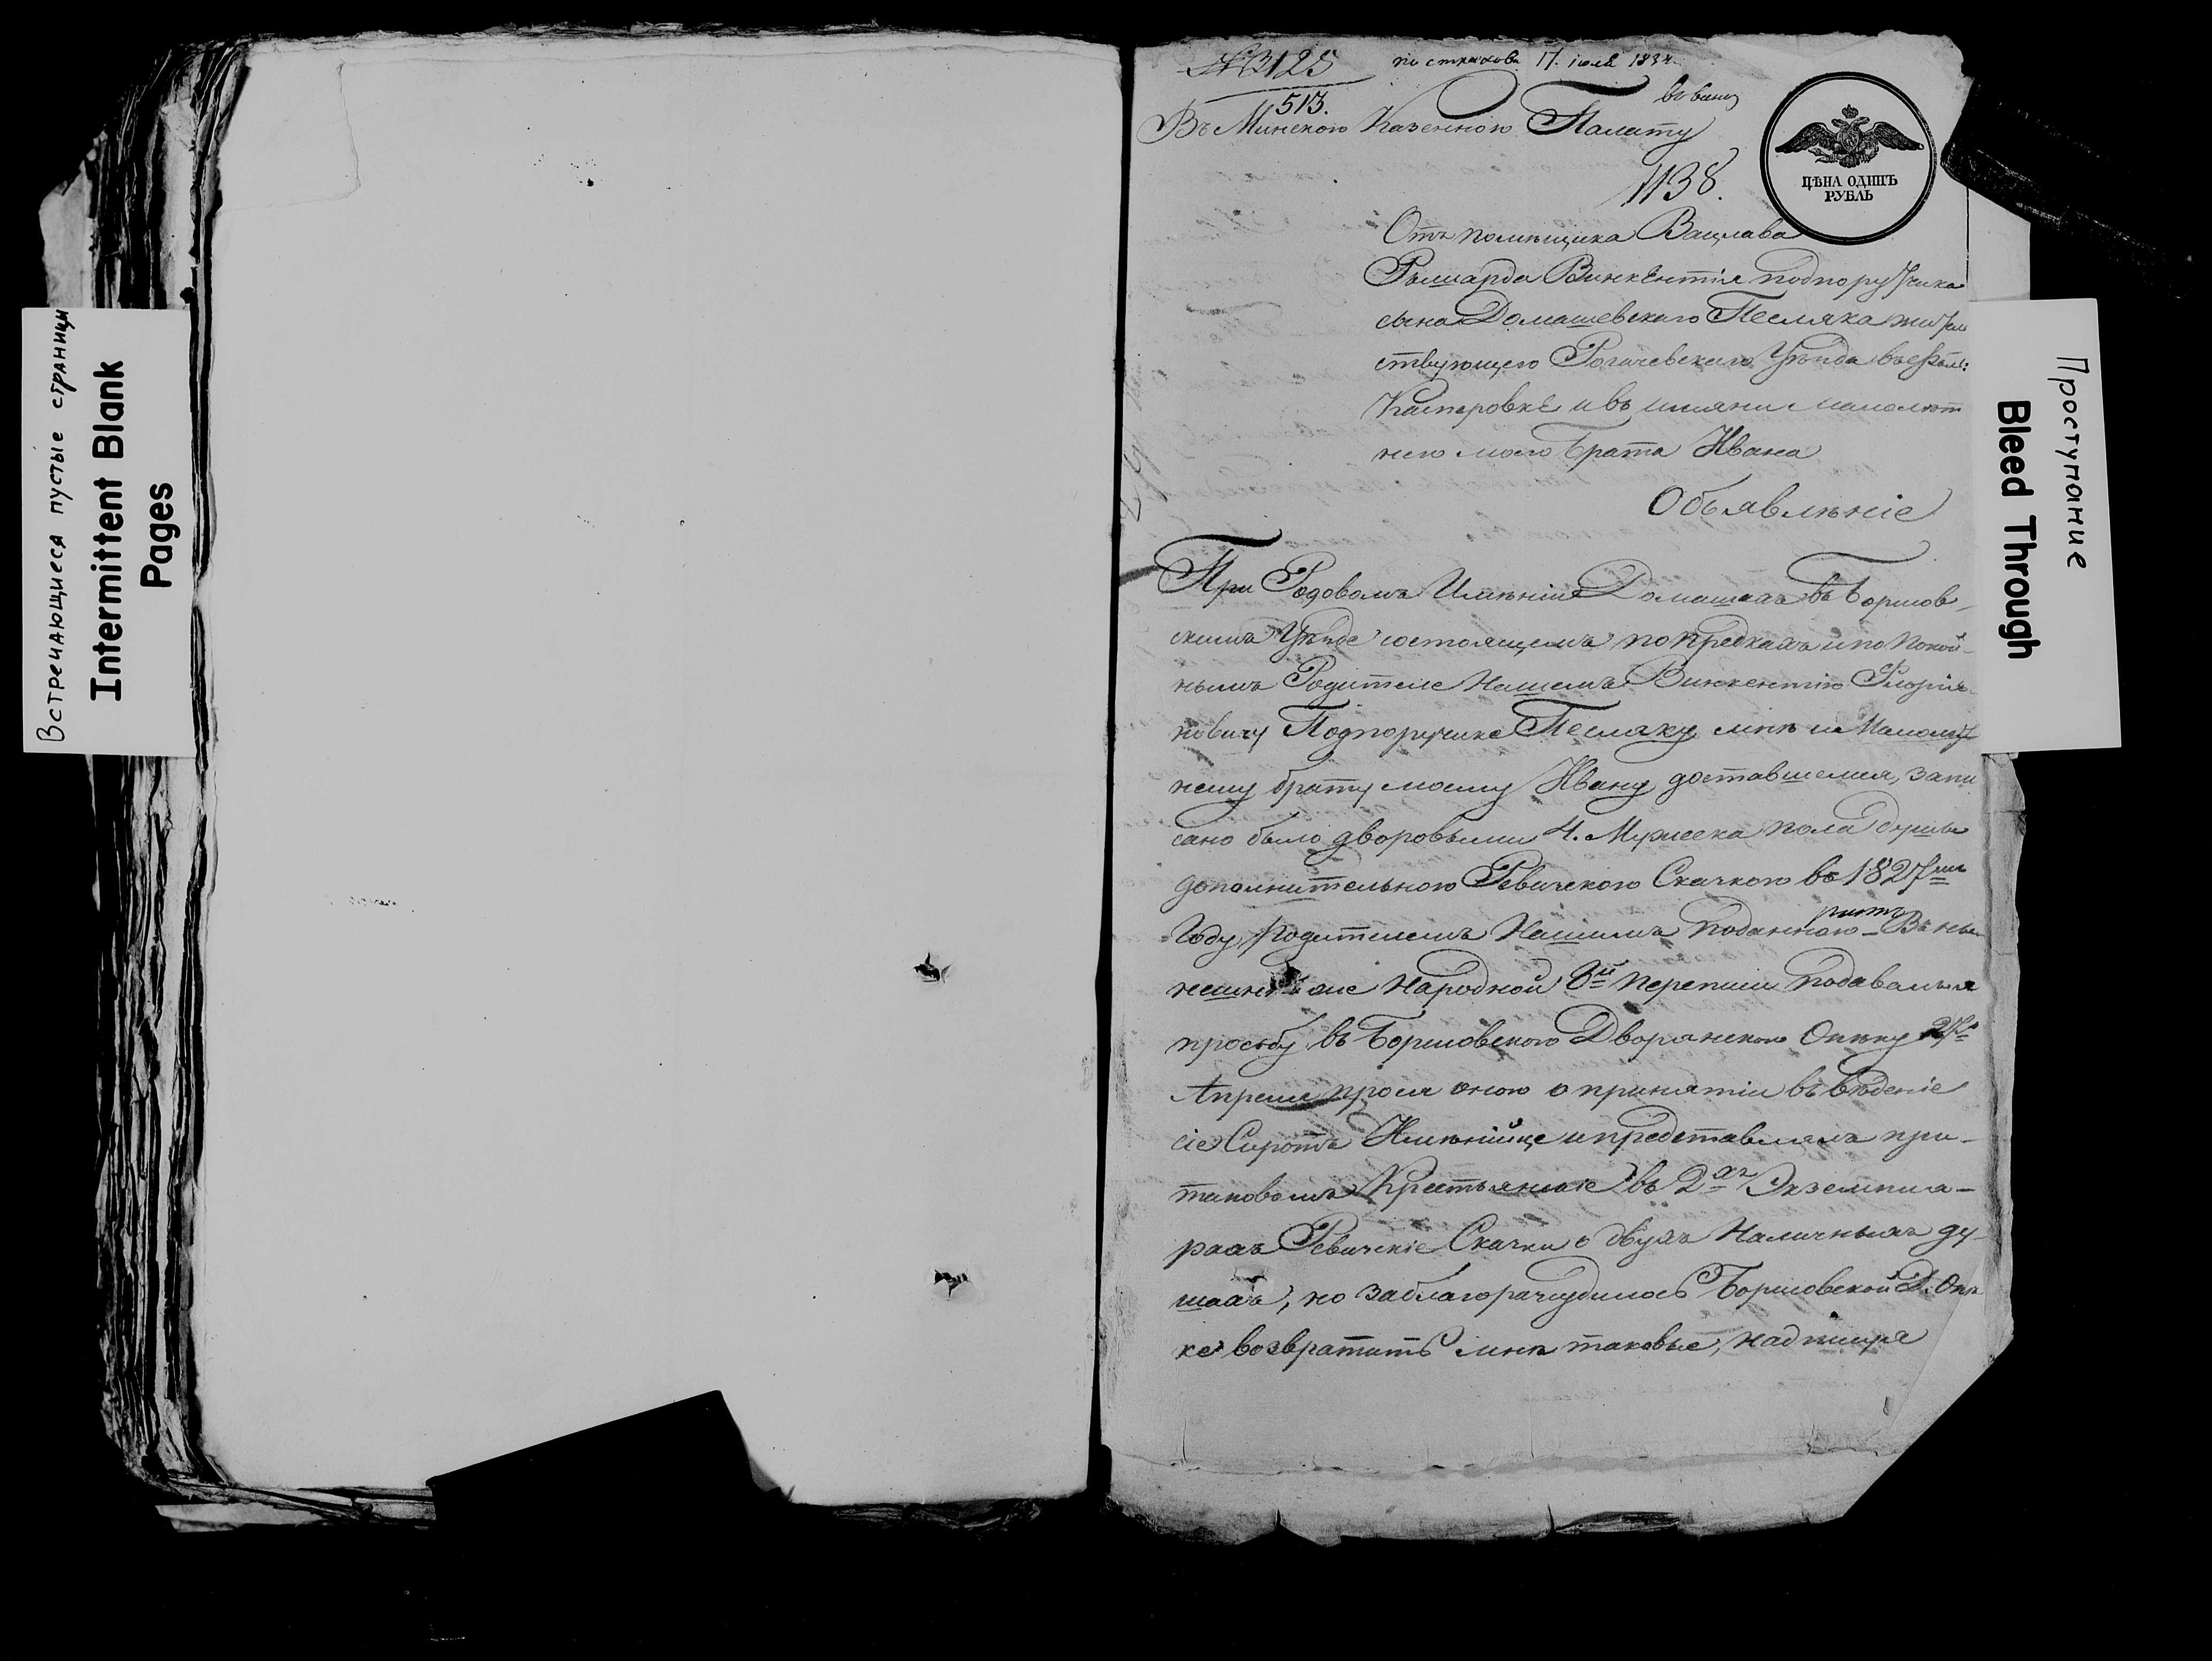 Встречающиеся пустые страницы
Intermittent Blank
Pages
№ 3125
513.
17. июля 1834.
Въ Минскою Казенною Палату
1138.
ЦѢНА ОДИНЪ
РУБЛЬ
Отъ помѣщика Вацлава
Рышарда Винкентія подпоручика
сына Домашевскаго Песляка житель
ствующего Рогачевскаго Уѣзда въ Фоль:
Каспаровке и въ имяни малолѣт
него моего брата Ивана
Объявлѣніе
При Родовомъ Имѣніи Домашахъ въ Борисов-
скимъ Уѣзде состоящемъ по предкахъ и по покой-
нымъ Родителе Нашемъ Винкентію Флоріа-
новичу Подпоручике Песляку мнѣ и Малолѣт
нему брату моему Ивану доставшемся, запи
сано было дворовыми 4. Мужеска пола душъ
дополнительною Ревизскою Скачкою въ 1827мъ
Году родителемъ Нашимъ поданною - В ны
нешн же народной 8й переписи подавалъ я
просьбу въ Борисовскою Дворянскою Опѣку 27го
Апреля прося оною о принятіи въ вѣденіе
сіе Сиротъ Имѣнійце и представлялъ при-
таковомъ въ 2хъ Экземпла-
рахъ Ревизскіе Скачки о двухъ Наличныхъ ду-
шахъ, но заблагоразсудилось Борисовской Д. Опѣ
ке возвратить мнѣ таковые, надпише
Проступание
Bleed Through